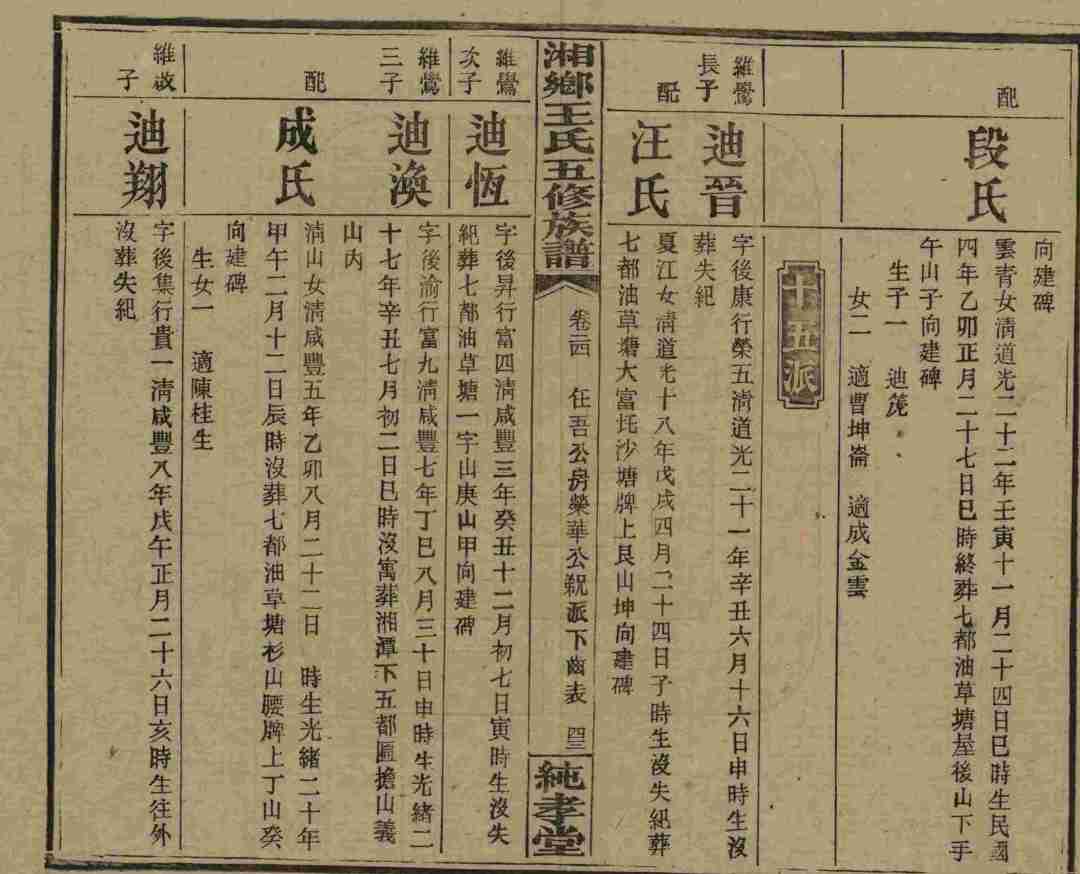 向建碑
配
段氏
雲青女清道光二十二年壬寅十一月二十四日巳時生民國
四年乙卯正月二十七日巳時終葬七都油草塘屋後山下手
午山子向建碑
生子一 迪篪
女二 適曹坤崙 適成金雲
十五派
維鸞
長子
迪晉
字後康行榮五清道光二十一年辛丑六月十六日申時生沒
葬失紀
配
汪氏
夏江女清道光十八年戊戌四月二十四日子時生沒失紀葬
七都油草塘大富坨沙塘牌上艮山坤向建碑
湘鄉王氏五修族譜
卷二四 任吾公房榮華公 派下齒表
純孝堂
維鸞
次子
迪恆
字後昇行富四清咸豐三年癸丑十二月初七日寅時生沒失
紀葬七都油草塘一字山庚山甲向建碑
維鸞
三子
迪渙
字後渝行富九清咸豐七年丁巳八月三十日申時生光緒二
十七年辛丑七月初二日巳時沒寓葬湘潭下五都匾擔山義
山內
配
成氏
清山女清咸豐五年乙卯八月二十二日 時生光緒二十年
甲午二月十二日辰時沒葬七都油草塘杉山腰牌上丁山癸
向建碑
生女一 適陳桂生
維啟
子
迪翔
字後集行貴一清咸豐八年戊午正月二十六日亥時生往外
沒葬失紀